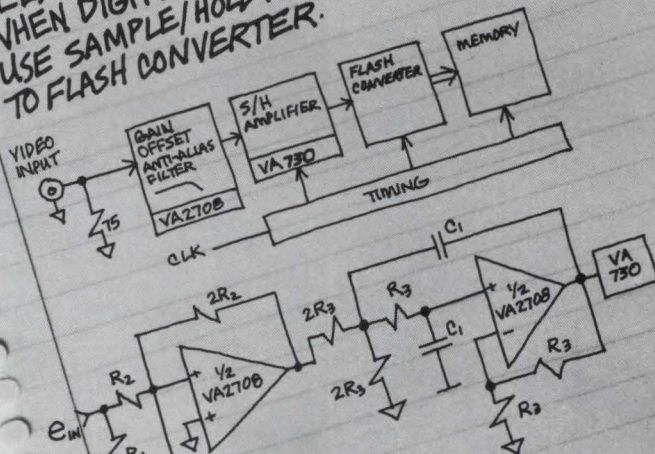 WHEN DIGIT
USE SAMPLE/HOLD
TO FLASH CONVERTER.
VIDEO
INPUT
75
GAIN
OFFSET
ANTI-ALIAS
FILTER
VA2708
S/H
AMPLIFIER
VA730
FLASH
CONVERTER
MEMORY
CLK
TIMING
eIN
R2
R1
2R2
1/2
VA2708
+
+
2R3
2R3
R3
C1
C1
+
-
1/2
VA2708
R3
R3
VA
730